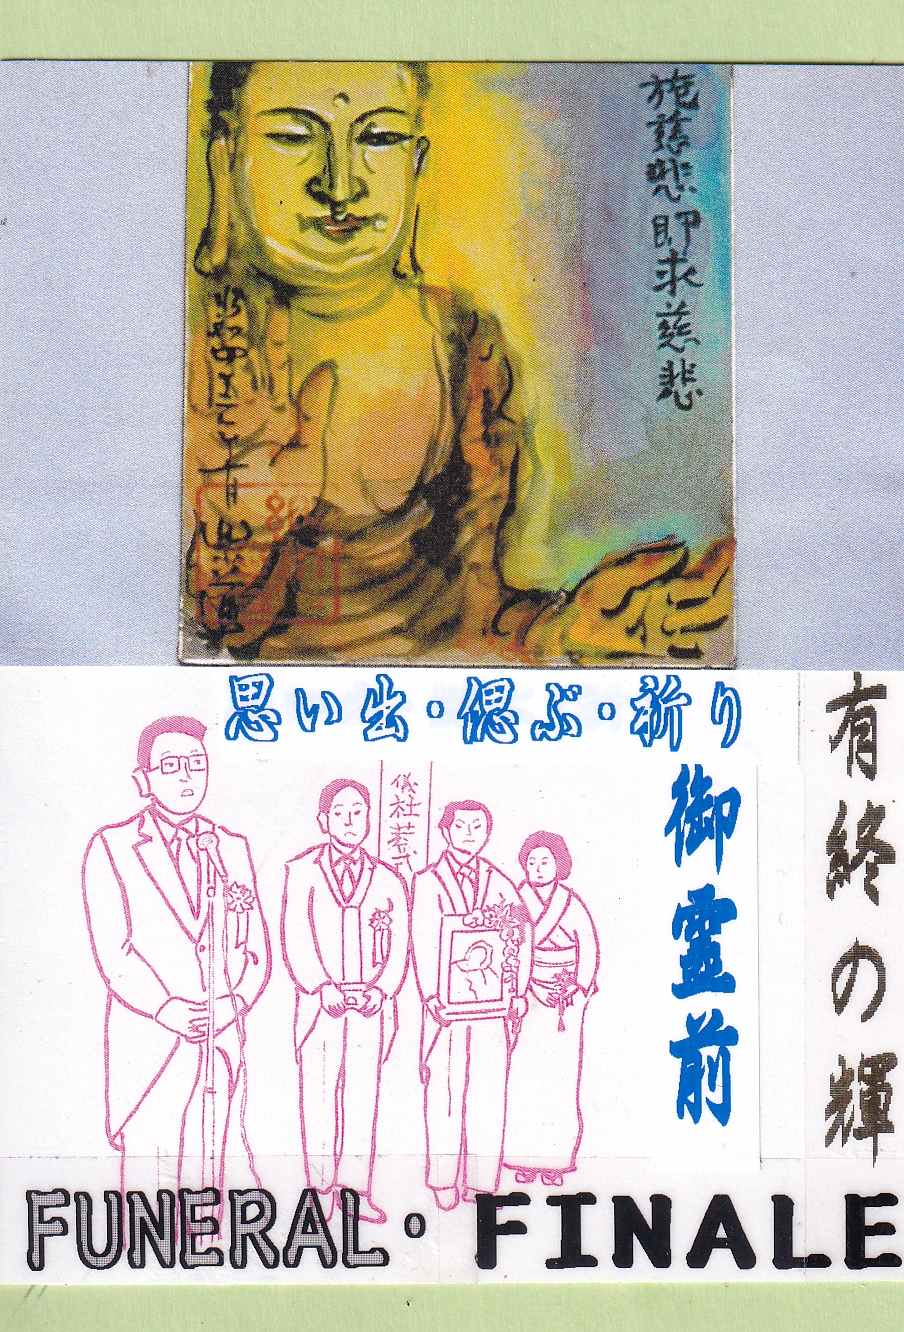 施慈悲即求慈悲
思い出・偲ぶ・祈り
御霊前
有終の輝
儀社葬
FUNERAL・FINALE